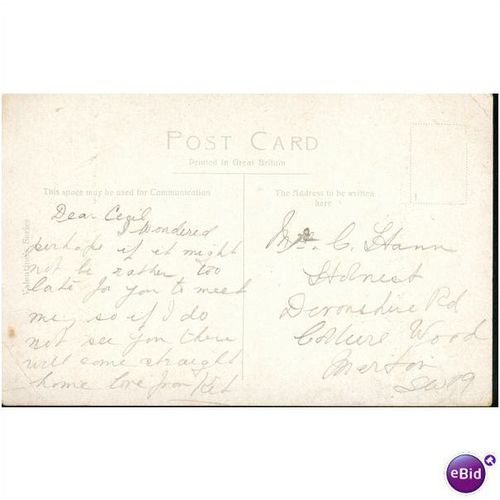 POST CARD
Printed in Great Britain
This space may be used for Communication
The Address to be written
here
Valentines Series
Dear Cecil
I wondered
perhaps if it might
not be rather too
late for you to meet
me, so if I do
not see you there
will come straight
home love from
C. Hann
Devonshire Rd
Wood
Merton
SW19
eBid